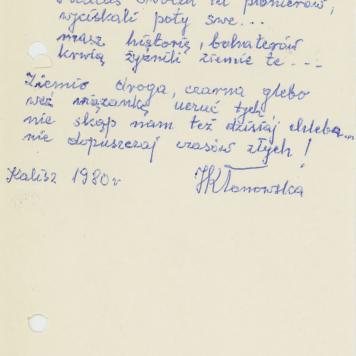 pionierów,
wyciskali poty swe...
nasz historię, bohaterów
krwią żyźnili ziemię tę...
Ziemio droga, czarna glebo
weź wiązankę uczuć tych
nie skąp nam też dzisiaj chleba...
nie dopuszczaj czasów złych!
Kalisz 1980 r
HKłonowska